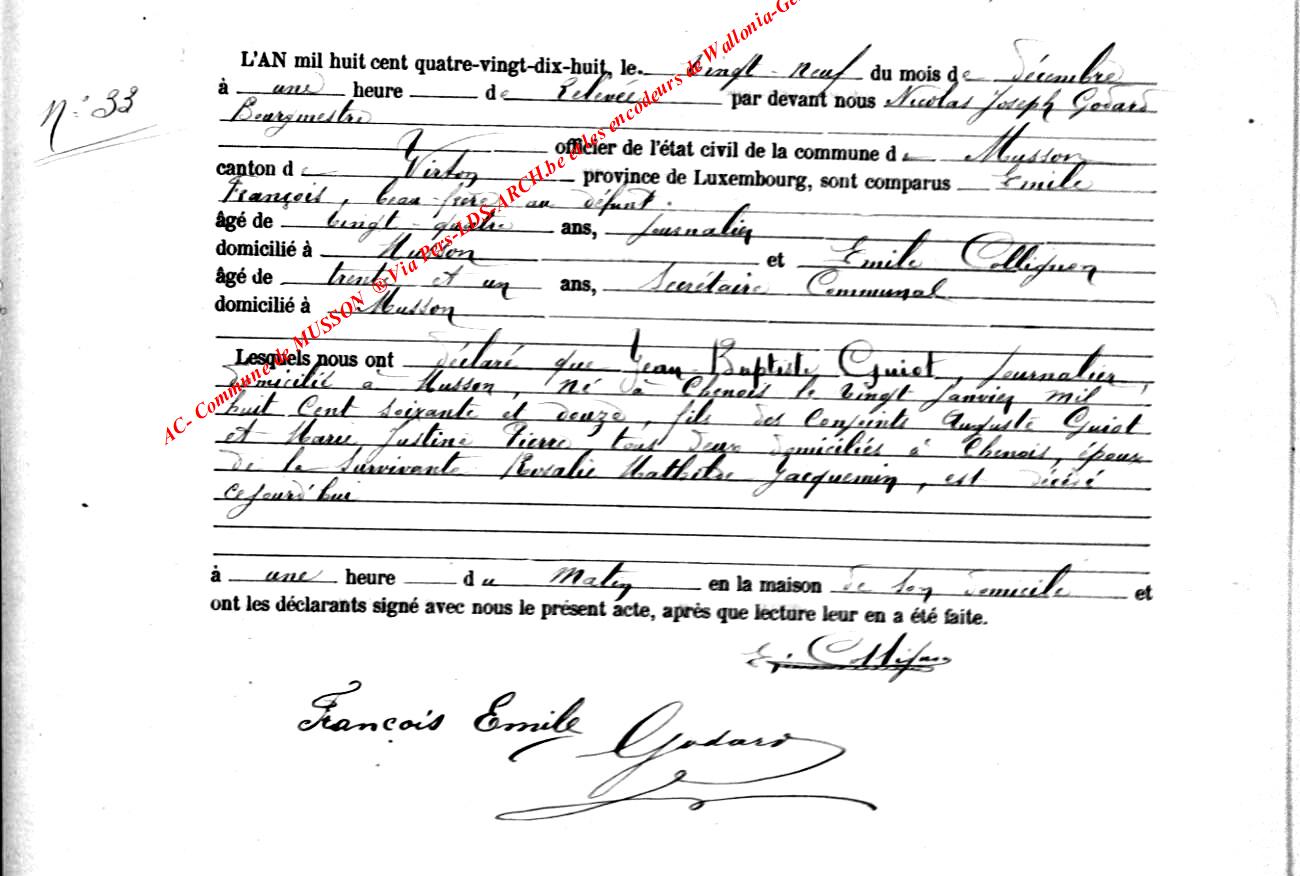 L'AN mil huit cent quatre-vingt-dix-huit, le vingt-neuf du mois de Décembre
N° 33
à une heure de relevée par devant nous Nicolas Joseph Godard
Bourgmestre
officier de l'état civil de la commune de Musson
canton de Virton province de Luxembourg, sont comparus Emile
François, beau-frère au défunt.
âgé de vingt-quatre ans, journalier
domicilié à Musson et Emile Collignon
âgé de trente et un ans, Secrétaire Communal
domicilié à Musson
Lesquels nous ont déclaré que Jean Baptiste Guiot journalier,
domicilié à Musson, né à Chenois le vingt janvier mil
huit cent soixante et douze, fils des conjoints Auguste Guiot
et Marie Justine Pierre tous deux domiciliés à Chenois, époux
de la survivante Rosalie Mathilde Jacquemin, est décédé
cejourd'hui
à une heure du matin en la maison de son domicile et
ont les déclarants signé avec nous le présent acte, après que lecture leur en a été faite.
E. Collignon
François Emile
Godard
AC- Commune de MUSSON ® Via Pers-LDS-ARCH.be et les encodeurs de Wallonia-Ge